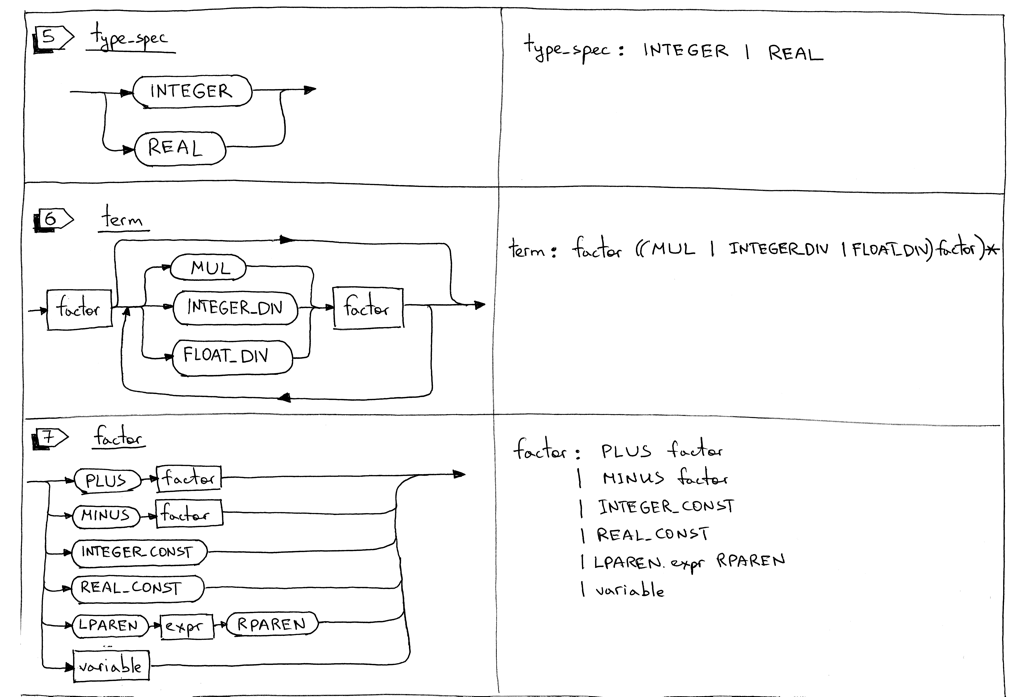 5 type_spec
type_spec : INTEGER | REAL
INTEGER
REAL
6 term
term : factor ((MUL | INTEGER_DIV | FLOAT_DIV) factor)*
MUL
factor INTEGER_DIV factor
FLOAT_DIV
7 factor
factor : PLUS factor
| MINUS factor
| INTEGER_CONST
| REAL_CONST
| LPAREN expr RPAREN
| variable
PLUS factor
MINUS factor
INTEGER_CONST
REAL_CONST
LPAREN expr RPAREN
variable